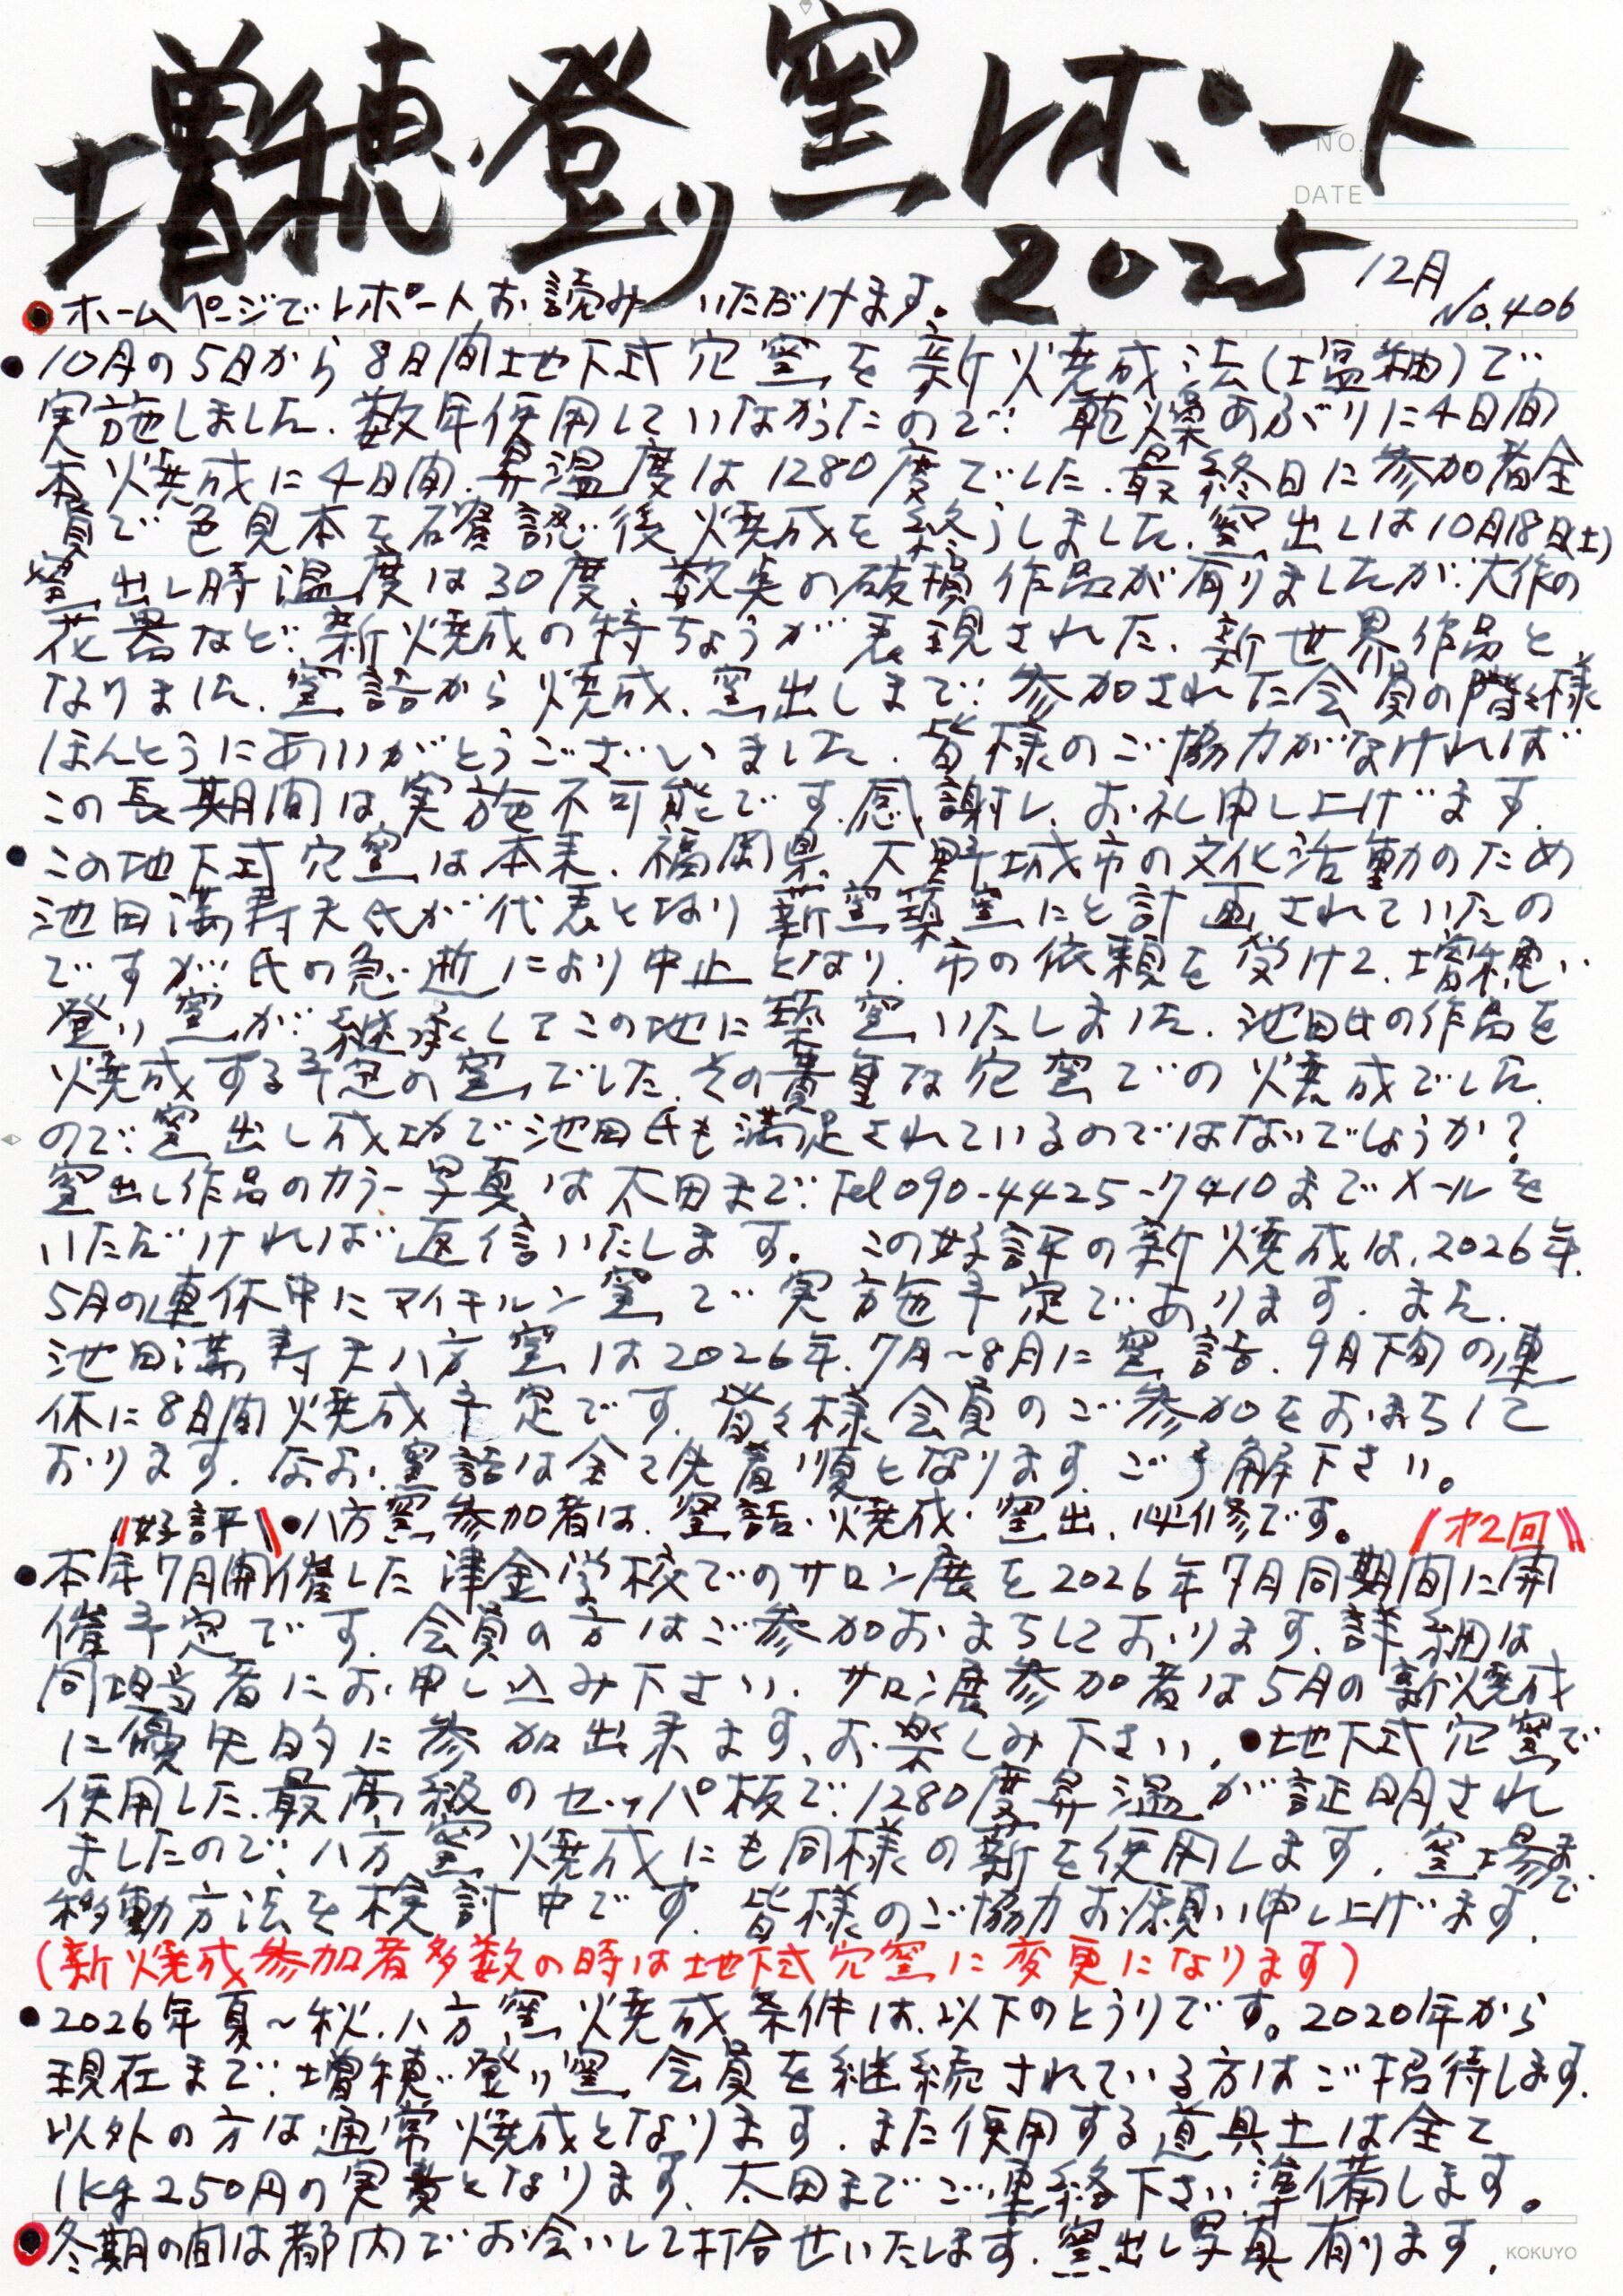 増穂登り窯レポート
NO.
DATE
2025 12月
No.406
●ホームページでレポートお読みいただけます。
●10月の5日から8日間地下式穴窯を新火焼成法(塩釉)で
実施しました。数年使用していなかったので、乾燥あぶりに4日間
本火焼成に4日間、昇温度は1280度でした。最終日に参加者全
員で色見本を確認後火焼成を終うしました。窯出しは10月18日(土)
窯出し時温度は30度、数点の破損作品が有りましたが、大作の
花器など、新火焼成の特ちょうが表現された、新世界作品と
なりました。窯詰から火焼成、窯出しまで、参加された会員の皆々様
ほんとうにありがとうございました。皆様のご協力がなければ
この長期間は実施不可能です。感謝し、お礼申し上げます。
●この地下式穴窯は本来、福岡県大野城市の文化活動のため
池田満寿夫氏が代表となり薪窯築窯にと計画されていたの
ですが、氏の急逝により中止となり、市の依頼を受けて、増穂
登り窯が、継承してこの地に築窯いたしました。池田氏の作品を
火焼成する予定の窯でした。その貴重な穴窯での火焼成でした
ので、窯出し成功で池田氏も満足されているのではないでしょうか?
窯出し作品のカラー写真は太田まで、Tel 090-4425-7410までメールを
いただければ返信いたします。この好評の新火焼成は、2026年
5月の連休中にマイキルン窯で実施予定であります。また、
池田満寿夫八方窯は2026年、7月~8月に窯詰、9月下旬の連
休に8日間火焼成予定です。皆々様会員のご参加をおまちして
おります。なお、窯詰は全て先着順となります。ご了解下さい。
"好評" ●八方窯参加者は、窯詰・火焼成・窯出、必修です。 "才2回"
●本年7月開催した津金学校でのサロン展を2026年7月同期間に開
催予定です。会員の方はご参加おまちしております。詳細は
同担当者にお申し込み下さい。サロン展参加者は5月の新火焼成
に優先的に参加出来ます、お楽しみ下さい。●地下式穴窯で
使用した、最高級のセッパ板で、1280度昇温が証明され
ましたので、八方窯火焼成にも同様の薪を使用します。窯場まで
移動方法を検討中です。皆様のご協力お願い申し上げます。
(新火焼成参加者多数の時は地下式穴窯に変更になります)
●2026年夏~秋、八方窯火焼成条件は、以下のとうりです。2020年から
現在まで、増穂登り窯会員を継続されている方はご招待します。
以外の方は通常火焼成となります。また使用する道具土は全て
1kg 250円の実費となります、太田までご連絡下さい準備します。
●冬期の間は都内でお会いして打合せいたします。窯出し写真有ります。
KOKUYO